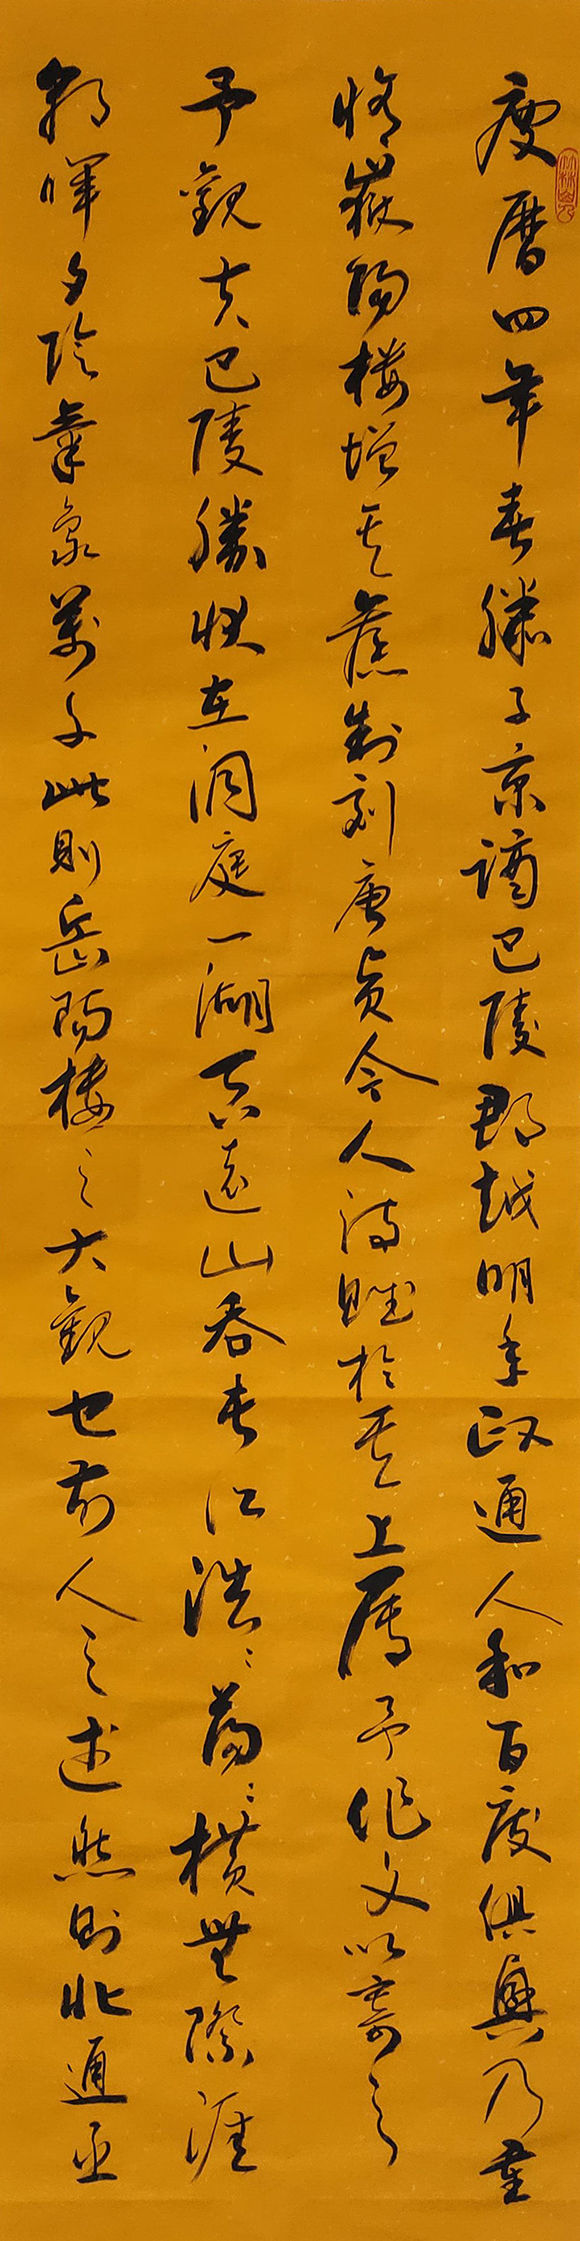 慶曆四年春滕子京謫巴陵郡越明年政通人和百廢俱興乃重
修嶽陽樓增其舊制刻唐賢今人詩賦於其上屬予作文以寄之
予觀夫巴陵勝狀在洞庭一湖銜遠山吞長江浩〻蕩〻橫無際涯
朝暉夕陰氣象萬千此則岳陽樓之大觀也前人之述然則北通巫